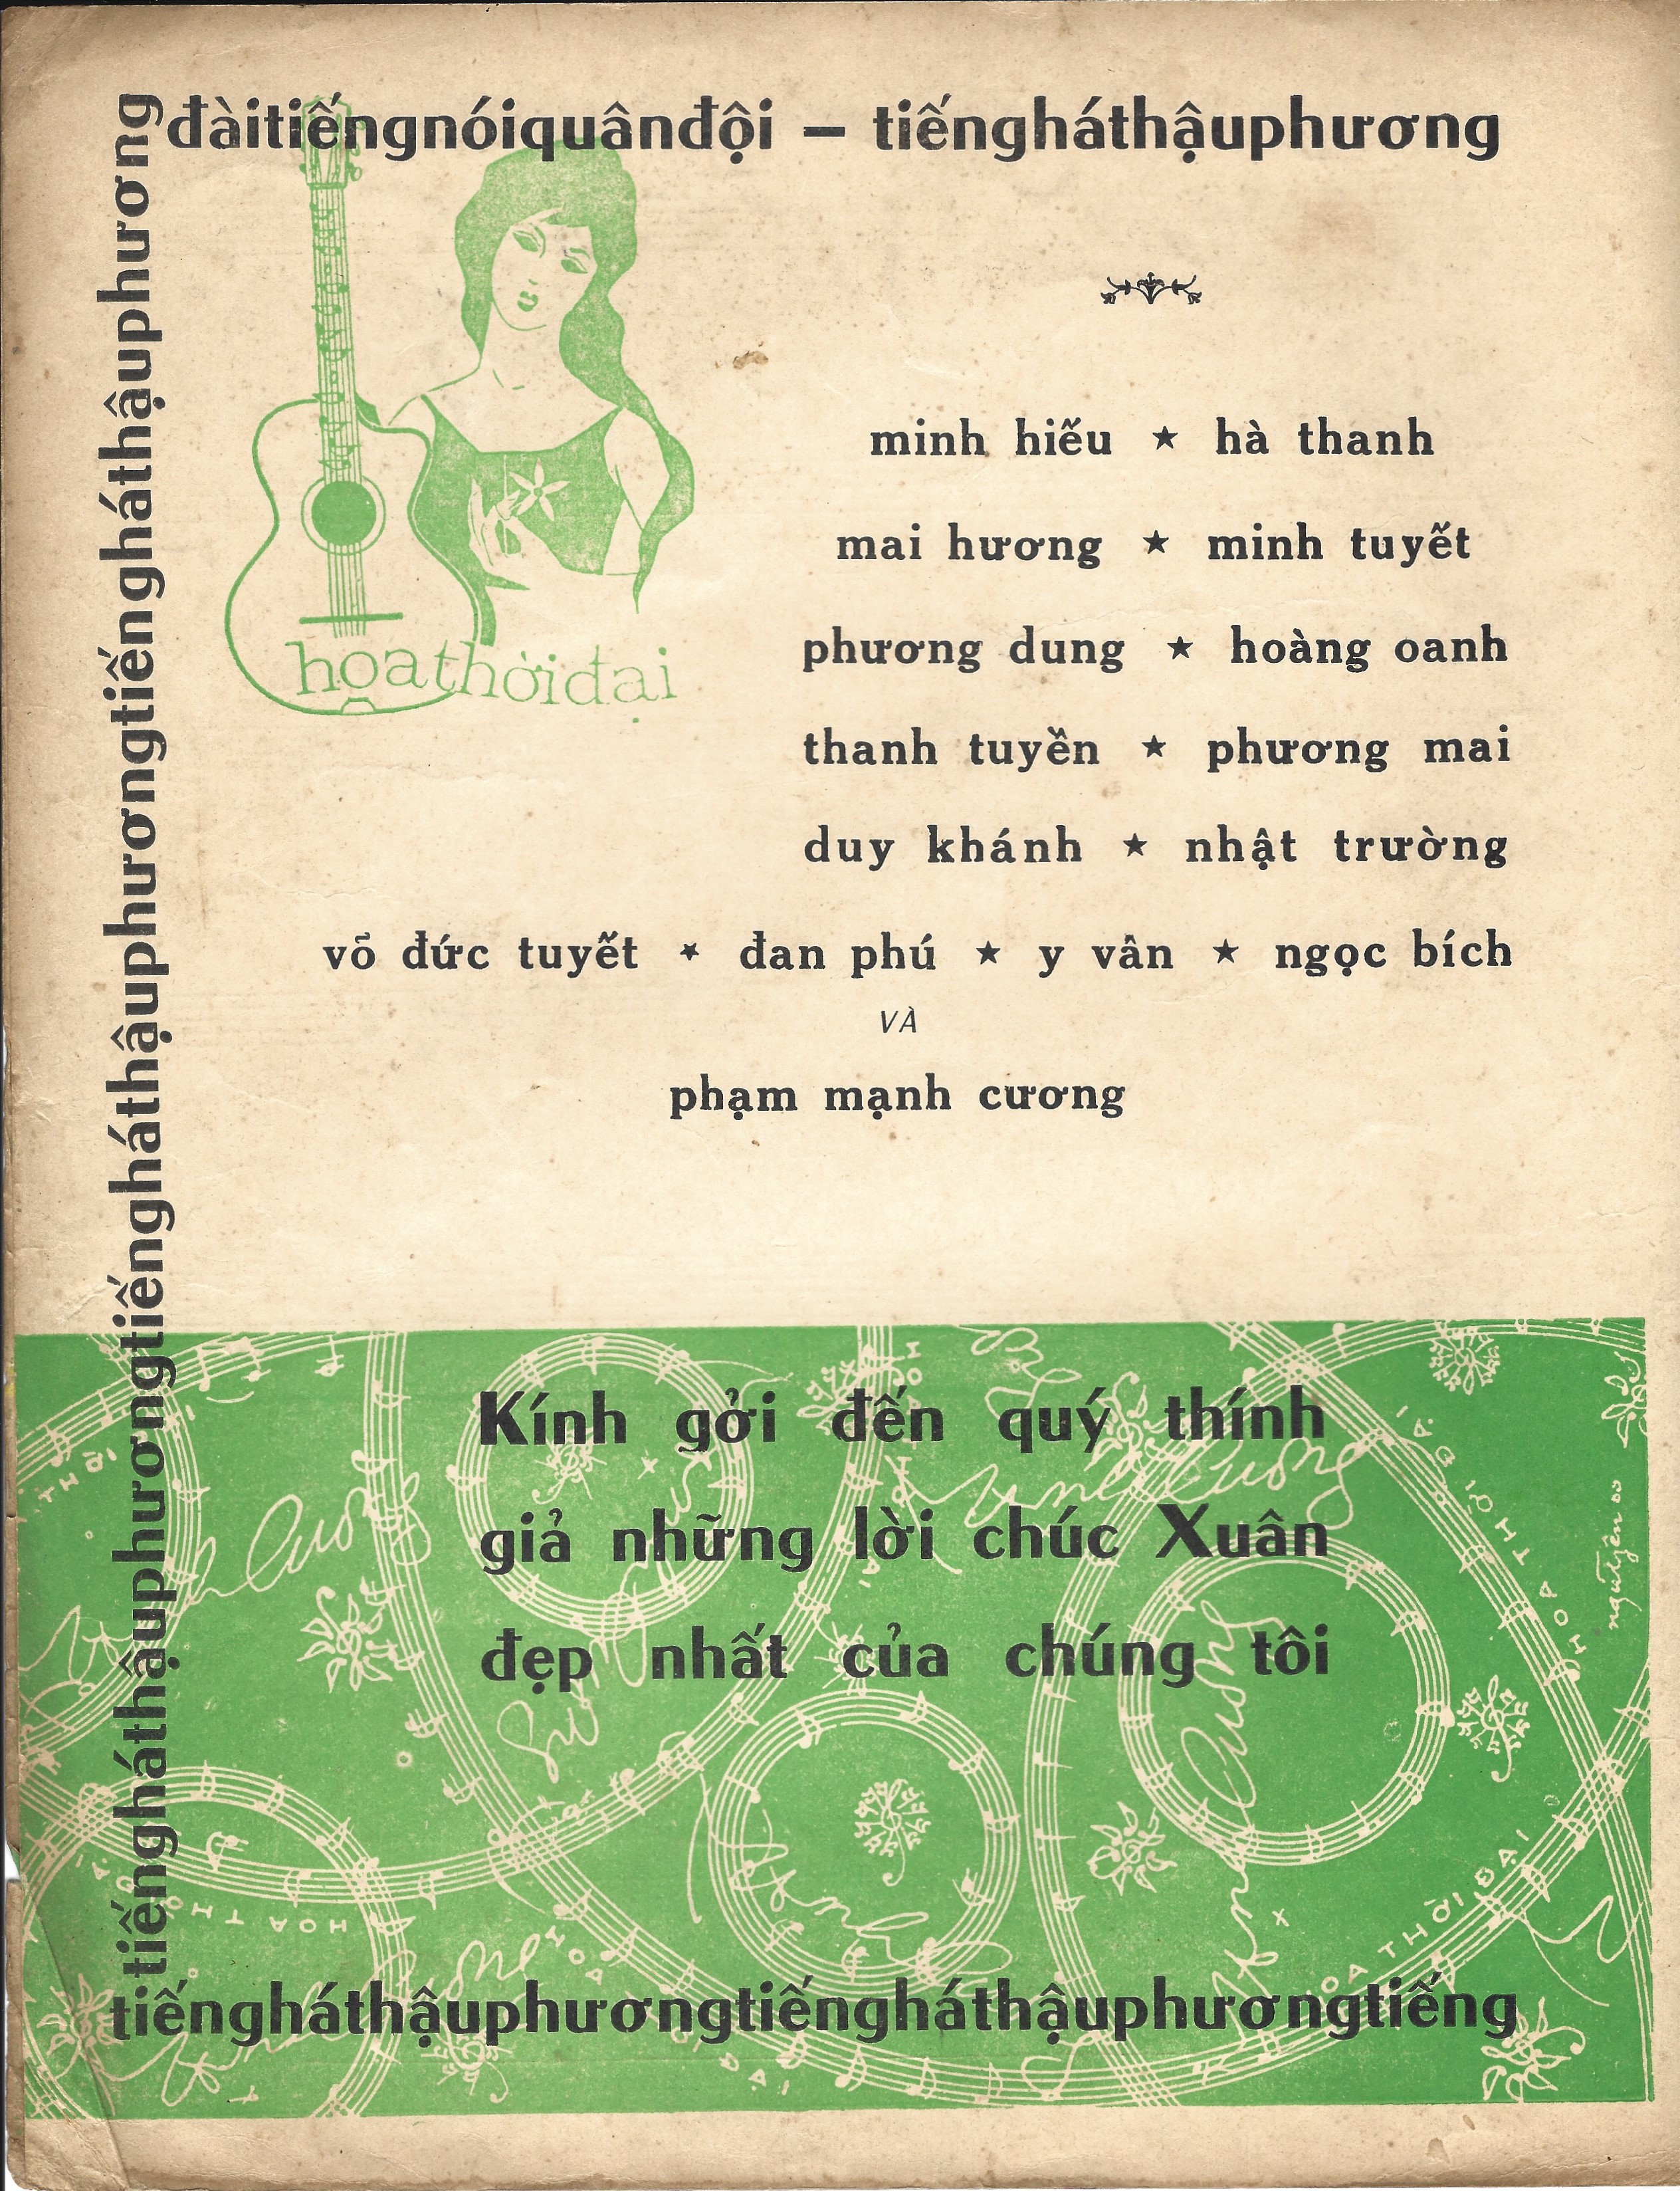 đàitiếngnóiquânđội — tiếngháthậuphương
tiếngháthậuphươngtiếngháthậuphươngtiếngháthậuphươngtiếngháthậuphương
hoathờiđại
minh hiếu ★ hà thanh
mai hương ★ minh tuyết
phương dung ★ hoàng oanh
thanh tuyền ★ phương mai
duy khánh ★ nhật trường
võ đức tuyết ★ đan phú ★ y vân ★ ngọc bích
VÀ
phạm mạnh cương
Kính gởi đến quý thính
giả những lời chúc Xuân
đẹp nhất của chúng tôi
HOA THỜI ĐẠI
HOA THỜI ĐẠI
tiếngháthậuphươngtiếngháthậuphươngtiếng